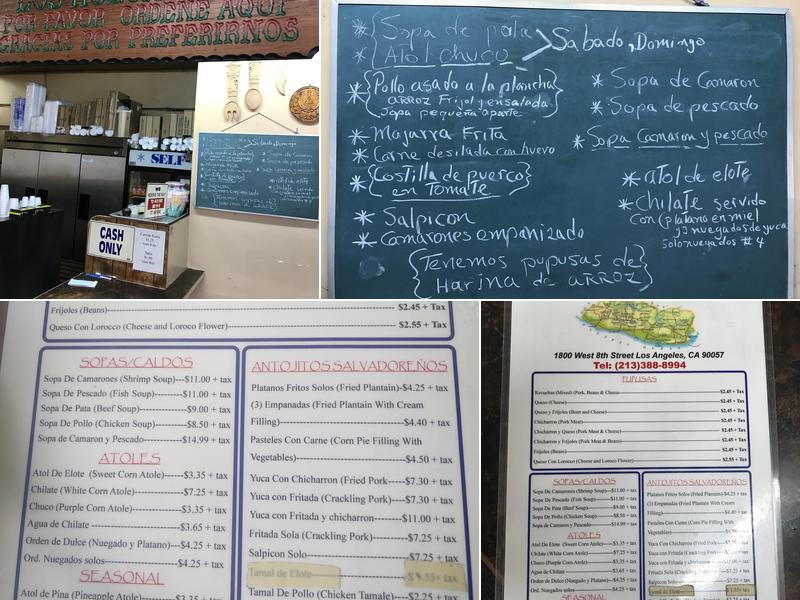 POR FAVOR ORDENE AQUI
GRACIAS POR PREFERIRNOS
* SELF-
CASH
ONLY
* Sopa de pata
* Atol chuco
> Sabado, Domingo
* {Pollo asado a la plancha
ARROZ Frijol y ensalada
Sopa pequeña aparte}
* Mojarra Frita
* Carne desilada con Huevo
* {Costilla de puerco
en Tomate}
* Salpicon
* Camarones empanizado
{Tenemos pupusas de
Harina de ARROZ}
* Sopa de Camaron
* Sopa de pescado
* Sopa Camaron y pescado
* atol de elote
* Chilate servido
con (platano en miel
y nuegados de yuca
solo nuegados #4
Frijoles (Beans) $2.45 + Tax
Queso Con Lorocco (Cheese and Loroco Flower) $2.55 + Tax
SOPAS/CALDOS
Sopa De Camarones (Shrimp Soup)---$11.00 + tax
Sopa De Pescado (Fish Soup)---$11.00 + tax
Sopa De Pata (Beef Soup)---$9.00 + tax
Sopa De Pollo (Chicken Soup)---$8.50 + tax
Sopa de Camaron y Pescado---$14.99 + tax
ATOLES
Atol De Elote (Sweet Corn Atole)----$3.35 + tax
Chilate (White Corn Atole)----$7.25 + tax
Chuco (Purple Corn Atole)----$3.35 + tax
Agua de Chilate----$3.65 + tax
Orden de Dulce (Nuegado y Platano)----$4.25 + tax
Ord. Nuegados solos----$4.25 + tax
SEASONAL
Atol de Pina (Pineapple Atole) $3.35 + tax
ANTOJITOS SALVADOREÑOS
Platanos Fritos Solos (Fried Plantain)-$4.25 + tax
(3) Empanadas (Fried Plantain With Cream
Filling)----$4.40 + tax
Pasteles Con Carne (Corn Pie Filling With
Vegetables)----$4.50 + tax
Yuca Con Chicharron (Fried Pork----$7.30 + tax
Yuca con Fritada (Crackling Pork)----$7.30 + tax
Yuca con Fritada y chicharron----$11.00 + tax
Fritada Sola (Crackling Pork)----$7.25 + tax
Salpicon Solo----$7.25 + tax
Tamal de Elote
Tamal De Pollo (Chicken Tamale)----$2.25 + tax
1800 West 8th Street Los Angeles, CA 90057
Tel: (213)388-8994
PUPUSAS
Revueltas (Mixed) (Pork, Beans & Cheese) $2.45 + Tax
Queso (Cheese) $2.45 + Tax
Queso y Frijoles (Bean and Cheese) $2.45 + Tax
Chicharron (Pork Meat) $2.45 + Tax
Chicharron y Queso (Pork Meat & Cheese) $2.45 + Tax
Chicharron y Frijoles (Pork Meat & Beans) $2.45 + Tax
Frijoles (Beans) $2.45 + Tax
Queso Con Lorocco (Cheese and Loroco Flower) $2.55 + Tax
SOPAS/CALDOS
Sopa De Camarones (Shrimp Soup)---$11.00 + tax
Sopa De Pescado (Fish Soup)---$11.00 + tax
Sopa De Pata (Beef Soup)---$9.00 + tax
Sopa De Pollo (Chicken Soup)---$8.50 + tax
Sopa de Camaron y Pescado---$14.99 + tax
ATOLES
Atol De Elote (Sweet Corn Atole)---$3.35 + tax
Chilate (White Corn Atole)---$7.25 + tax
Chuco (Purple Corn Atole)---$3.35 + tax
Agua de Chilate---$3.65 + tax
Orden de Dulce (Nuegado y Platano)---$4.25 + tax
Ord. Nuegados solos---$4.25 + tax
SEASONAL
ANTOJITOS SALVADOREÑOS
Platanos Fritos Solos (Fried Plantain)-$4.25 + tax
(3) Empanadas (Fried Plantain With Cream
Filling)---$4.40 + tax
Pasteles Con Carne (Corn Pie Filling With
Vegetables)
Yuca Con Chicharron (Fried Pork
Yuca con Fritada (Crackling Pork)
Yuca con Fritada y chicharron
Fritada Sola (Crackling Pork)---$7.25 + tax
Salpicon Solo---$7.25 + tax
Tamal de Elote